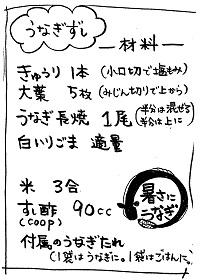 うなぎずし
―材料―
きゅうり 1本 (小口切で塩もみ)
大葉 5枚 (みじん切りで上から)
うなぎ長焼 1尾 (半分は混ぜる 半分は上に)
白いりごま 適量
米 3合
すし酢 90cc
(coop)
暑さに
うなぎ
付属のうなぎたれ
(1袋はうなぎに。1袋はごはんに。)